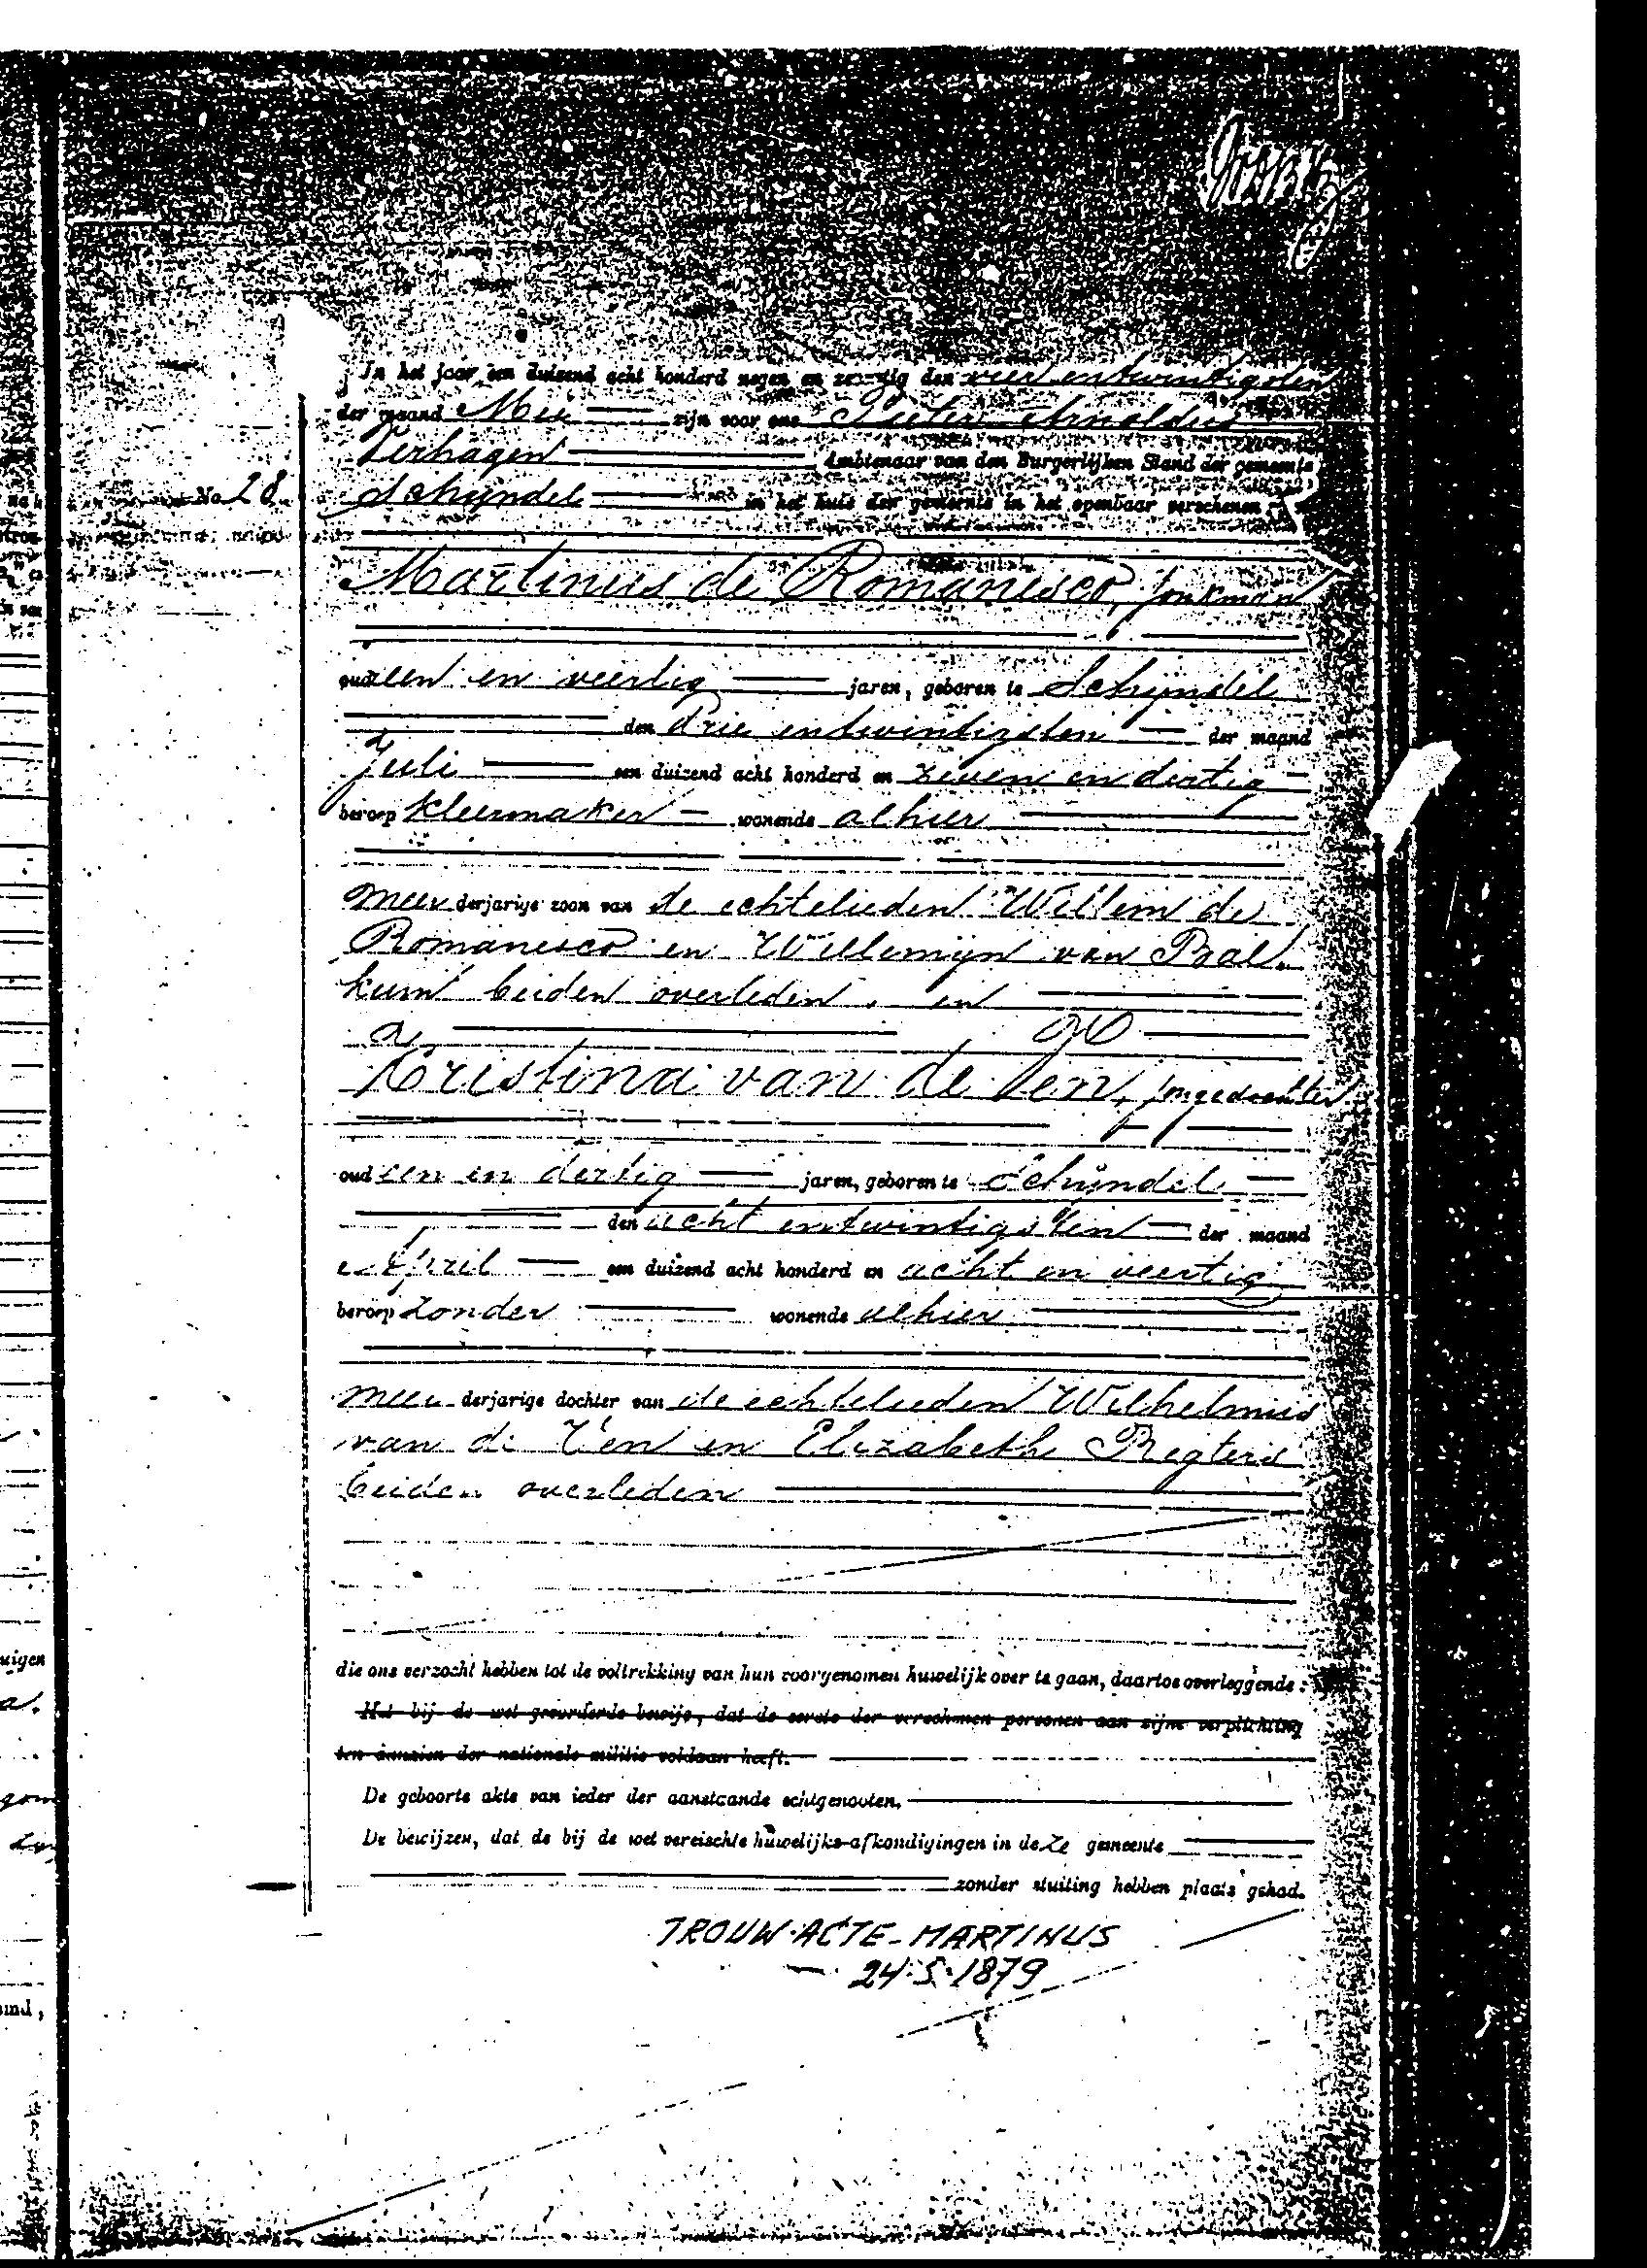 In het jaar een duizend acht honderd negen en zeventig den vier entwintigsten
der maand Mei zijn voor ons Pieter Arnoldus
Verhagen Ambtenaar van den Burgerlijken Stand der gemeente
No 28 Schijndel in het huis der gemeente in het openbaar verschenen
Martinus de Romanesco, jonkman
oud een en veertig jaren, geboren te Schijndel
den drie entwintigsten der maand
Juli een duizend acht honderd en zeven en dertig
beroep kleermaker wonende alhier
meer derjarige zoon van de echtelieden Willem de
Romanesco en Willemijn van Bal-
kum beiden overleden. en
Kristina van de Ven, jongedochter
oud een en dertig jaren, geboren te Schijndel
den acht entwintigsten der maand
April een duizend acht honderd en acht en veertig
beroep zonder wonende alhier
meer derjarige dochter van de echtelieden Wilhelmus
van de Ven en Elizabeth Regters
beiden overleden
die ons verzocht hebben tot de voltrekking van hun voorgenomen huwelijk over te gaan, daartoe overleggende:
Het bij de wet gevorderde bewijs, dat de eerste der verschenen personen aan zijne verplichting
ten aanzien der nationale militie voldaan heeft.
De geboorte akte van ieder der aanstaande echtgenooten.
De bewijzen, dat de bij de wet vereischte huwelijks-afkondigingen in deze gemeente
zonder stuiting hebben plaats gehad.
TROUW-ACTE-MARTINUS
24-5-1879